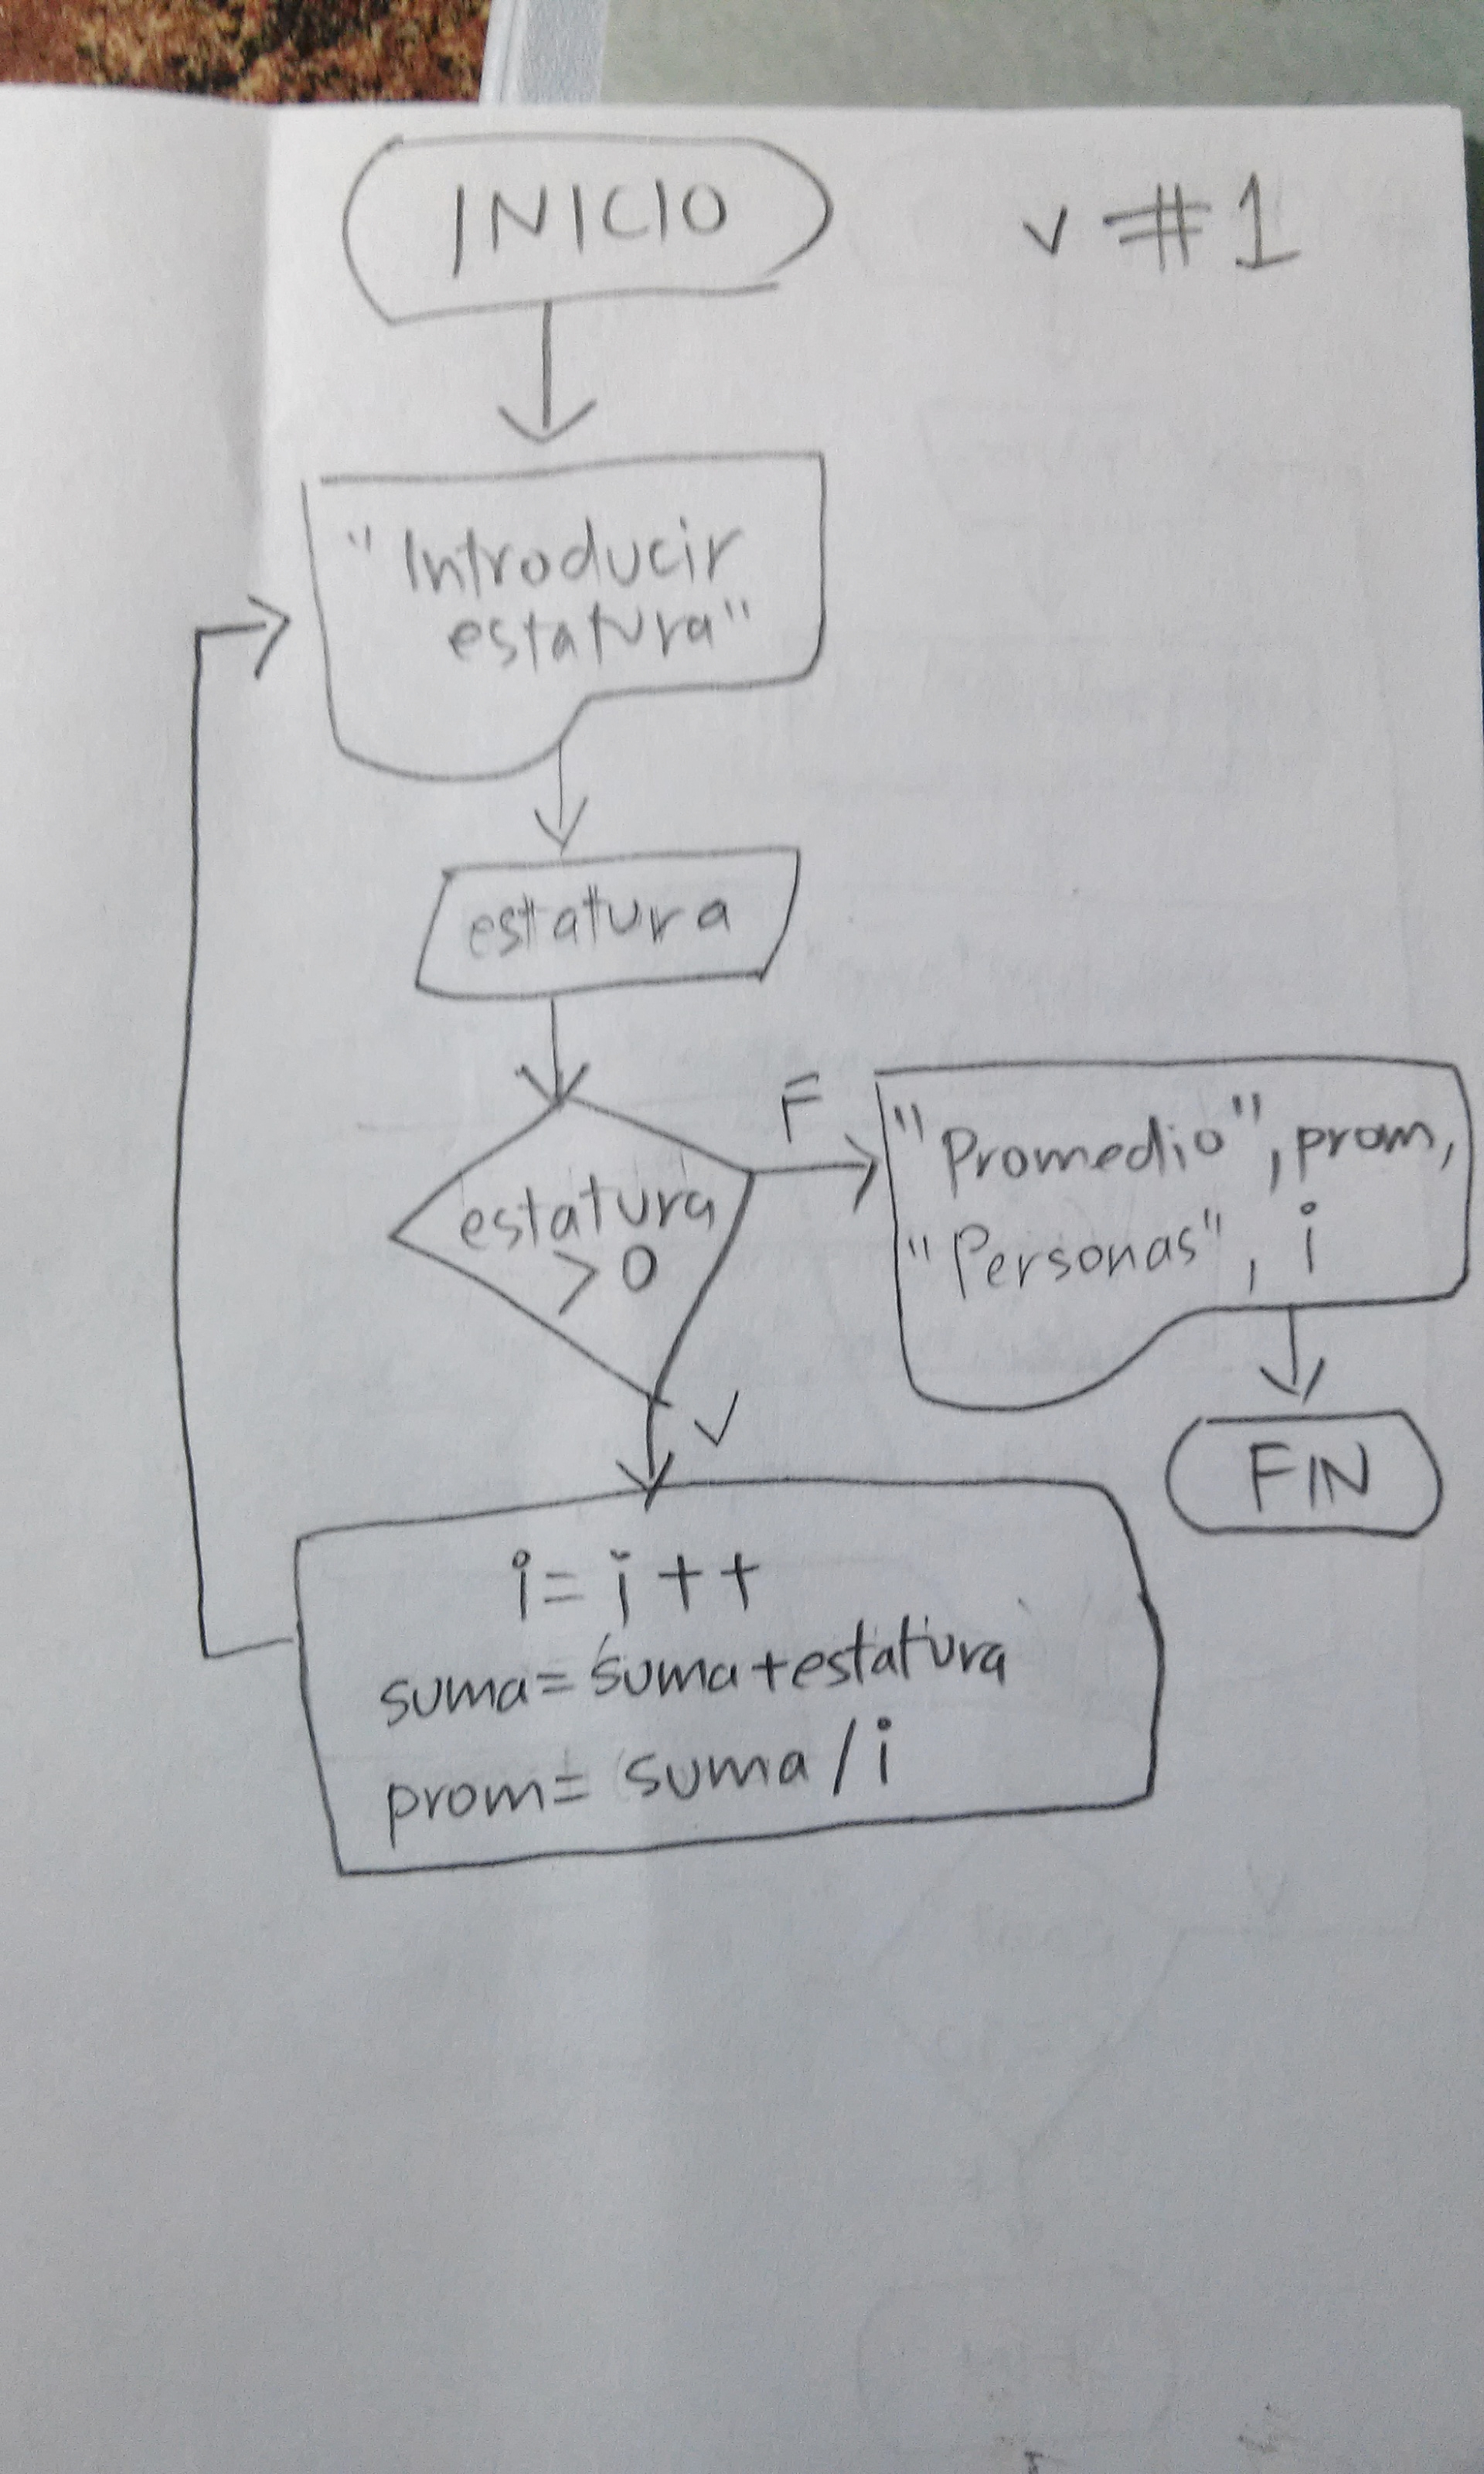 INICIO
v #1
"Introducir
estatura"
estatura
estatura
>0
F
"Promedio", prom,
"Personas", i
FIN
V
i= i ++
suma= suma+estatura
prom= suma/i